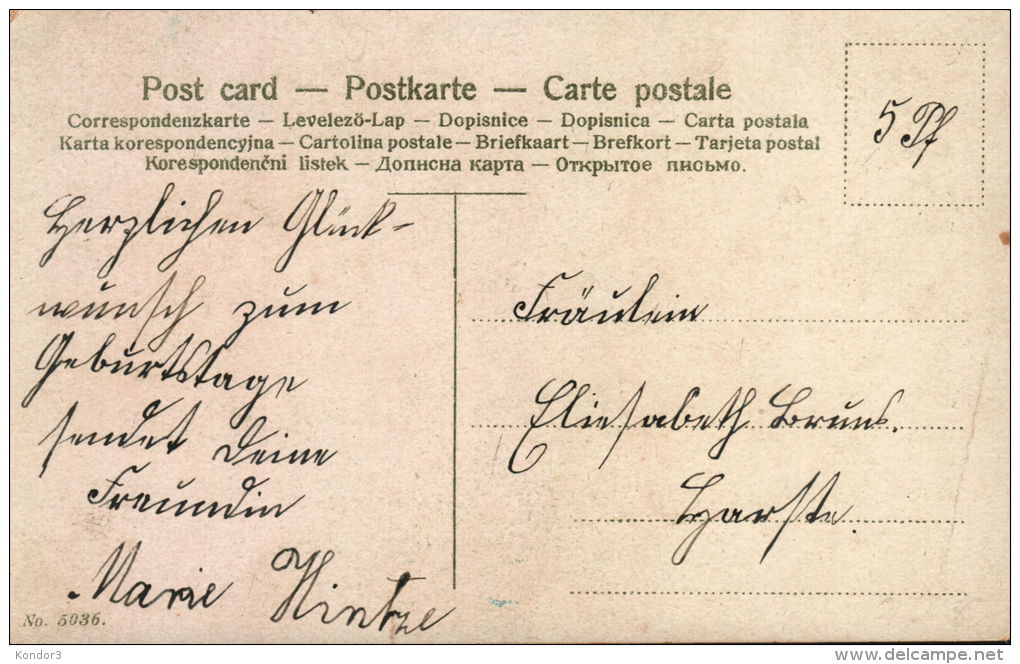 Post card — Postkarte — Carte postale
Correspondenzkarte — Levelező-Lap — Dopisnice — Dopisnica — Carta postala
Karta korespondencyjna — Cartolina postale — Briefkaart — Brefkort — Tarjeta postal
Korespondenčni listek — Дописна карта — Открытое письмо.
5 Pf
Herzlichen Glück-
wunsch zum
Geburtstage
sendet Deine
Freundin
Marie Hintze
Fräulein
Eliesabeth Bruns.
Harste.
No. 5036.
Kondor3
delcampe.net